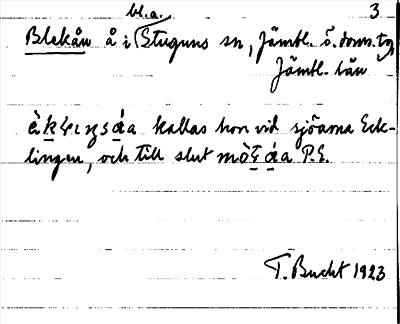 bl.a. 3
Blekån å i Stuguns sn, Jämtl. ö. doms. tg,
Jämtl. län
kallas hon vid sjöarna Eck-
lingen, och till slut P.E.
T. Bucht 1923